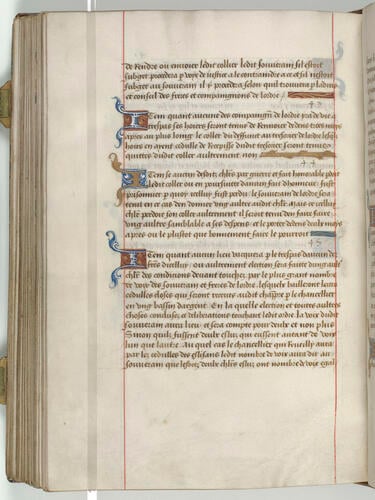 de Rendre ou envoier ledit collier ledit souverain sil estoit
subget procedera par voye de justice a le contraindre a ce et sil nestoit
subget au souverain il y procedera selon quil trouvera par ladvis
et conseil des freres et compaignons de lordre
43
Item quant aucuns des compaignons de lordre yra de vie a
trespas ses hoirs seront tenus de Renvoier dedens trois moys
apres au plus long le collier du deffunt au tresorier de lordre lesquelx
hoirs en ayent cedulle de Recepisse dudit tresorier seront tenus
quittes dudit collier aultrement non
44
Item se aucun desdits chevaliers par guerre et fait honnorable perdoit
ledit collier ou en poursuivant dhonneur fust
prisonnier par quoy icelluy fust perdu le souverain de lordre sera
tenu en ce cas den donner ung aultre audit chevalier Mais se icelluy
chevalier perdoit son collier aultrement il seroit tenu den faire faire
ung aultre semblable a ses despens et le porter dedens quatre moys
apres ou le plustost que bonnement faire le pourroit
45
Item quant aucun lieu vacquera par le trespas daucun des
freres dicelluy ou aultrement election sera faicte dung aultre
chevalier des conditions devant touchees par le plus grant nombre
de voix des souverain et freres de lordre lesquelx bailleront leurs
cedulles closes qui seront receues audit chapitre par le chancellier
en ung bassin dargent En la quelle election et toutes aultres
choses conduises et deliberations touchant ledit ordre la voix dudit
souverain aura lieu et sera compte pour deulx et non plus
Sinon quilz fussent deulx esleuz qui eussent autant de voix
lun que laultre Au quel cas le chancellier qui Recueilly aura
par les cedulles des eslisans ledit nombre de voix aura dit au
souverain que lesdits deulx chevaliers esleuz ont nombre de voix egal